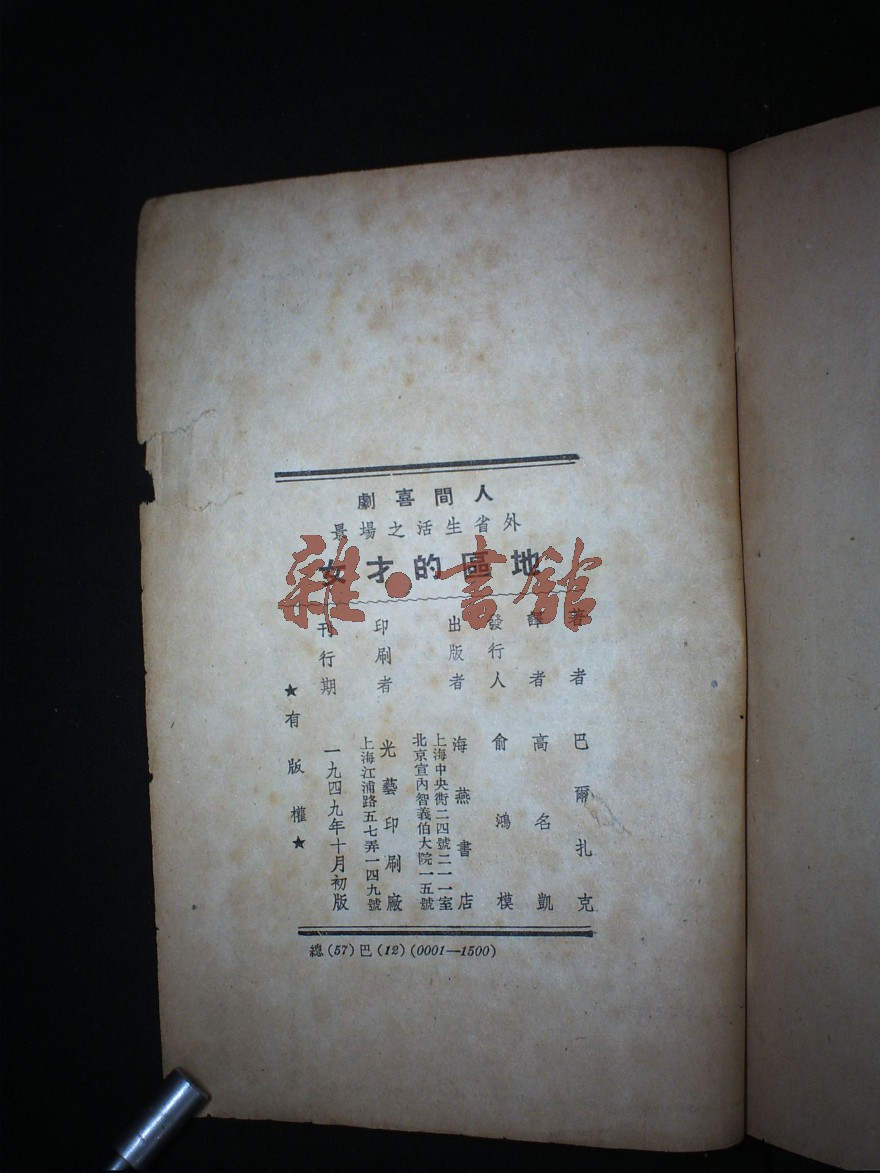 人間喜劇
外省生活之場景
地區的才女
著者 巴爾扎克
譯者 高名凱
發行人 俞鴻模
出版者 海燕書店
上海中央街二四號二一一室
北京宣內智義伯大院一五號
印刷者 光藝印刷廠
上海江浦路五七弄一四九號
刊行期 一九四九年十月初版
★有版權★
總(57)巴(12)(0001—1500)
雜·書館